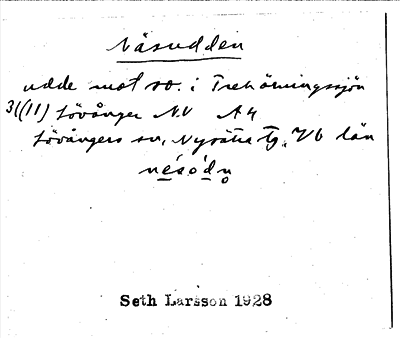 Näsudden
udde mot so. i Trehörningssjön
31(11) Lövånger N.V A4
Lövångers sn, Nysätra tg. Vb län
nésó̀dn̥
Seth Larsson 1928